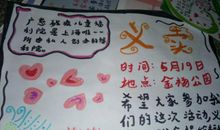 广慈残疾儿童福
利院是上海唯一
所由私人创办的福
利院。
义卖
时间：5月19日
地点：金梅公园
希望大家参加我
们的这次活动